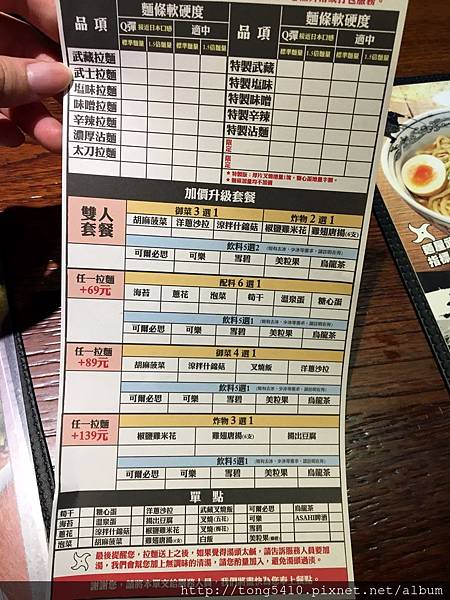 麵條軟硬度 麵條軟硬度
品項 Q彈 接近日本口感 適中 品項 Q彈 接近日本口感 適中
標準麵量 1.5倍麵量 標準麵量 1.5倍麵量 標準麵量 1.5倍麵量 標準麵量 1.5倍麵量
武藏拉麵 特製武藏
武士拉麵 特製塩味
塩味拉麵 特製味噌
味噌拉麵 特製辛辣
辛辣拉麵 特製沾麵
濃厚沾麵 限定
太刀拉麵 限定
加價升級套餐
雙人套餐 御菜3選1 炸物2選1
胡麻菠菜 洋蔥沙拉 涼拌什錦菇 椒鹽雞米花 雞翅唐揚(6支)
飲料5選2
可爾必思 可樂 雪碧 美粒果 烏龍茶
任一拉麵 +69元 配料6選1
海苔 蔥花 泡菜 筍干 溫泉蛋 糖心蛋
飲料5選1
可爾必思 可樂 雪碧 美粒果 烏龍茶
任一拉麵 +89元 御菜4選1
胡麻菠菜 涼拌什錦菇 叉燒飯 洋蔥沙拉
飲料5選1
可爾必思 可樂 雪碧 美粒果 烏龍茶
任一拉麵 +139元 炸物3選1
椒鹽雞米花 雞翅唐揚(6支) 揚出豆腐
飲料5選1
可爾必思 可樂 雪碧 美粒果 烏龍茶
單點
筍干 糖心蛋 洋蔥沙拉 武藏叉燒飯 可爾必思 烏龍茶
海苔 溫泉蛋 揚出豆腐 叉燒(五花) 可樂 ASAHI啤酒
蔥花 胡麻菠菜 椒鹽雞米花 叉燒 雪碧
泡菜 涼拌什錦菇 雞翅唐揚(6支) 白飯 美粒果
最後提醒您，拉麵送上之後，如果覺得湯頭太鹹，請告訴服務人員要加
湯，我們會幫您加上無調味的清湯，請您酌量加入，避免湯頭過淡。
謝謝您，請將本單交給服務人員，我們將盡快為您奉上餐點。
http://tong5410.pixnet.net/album